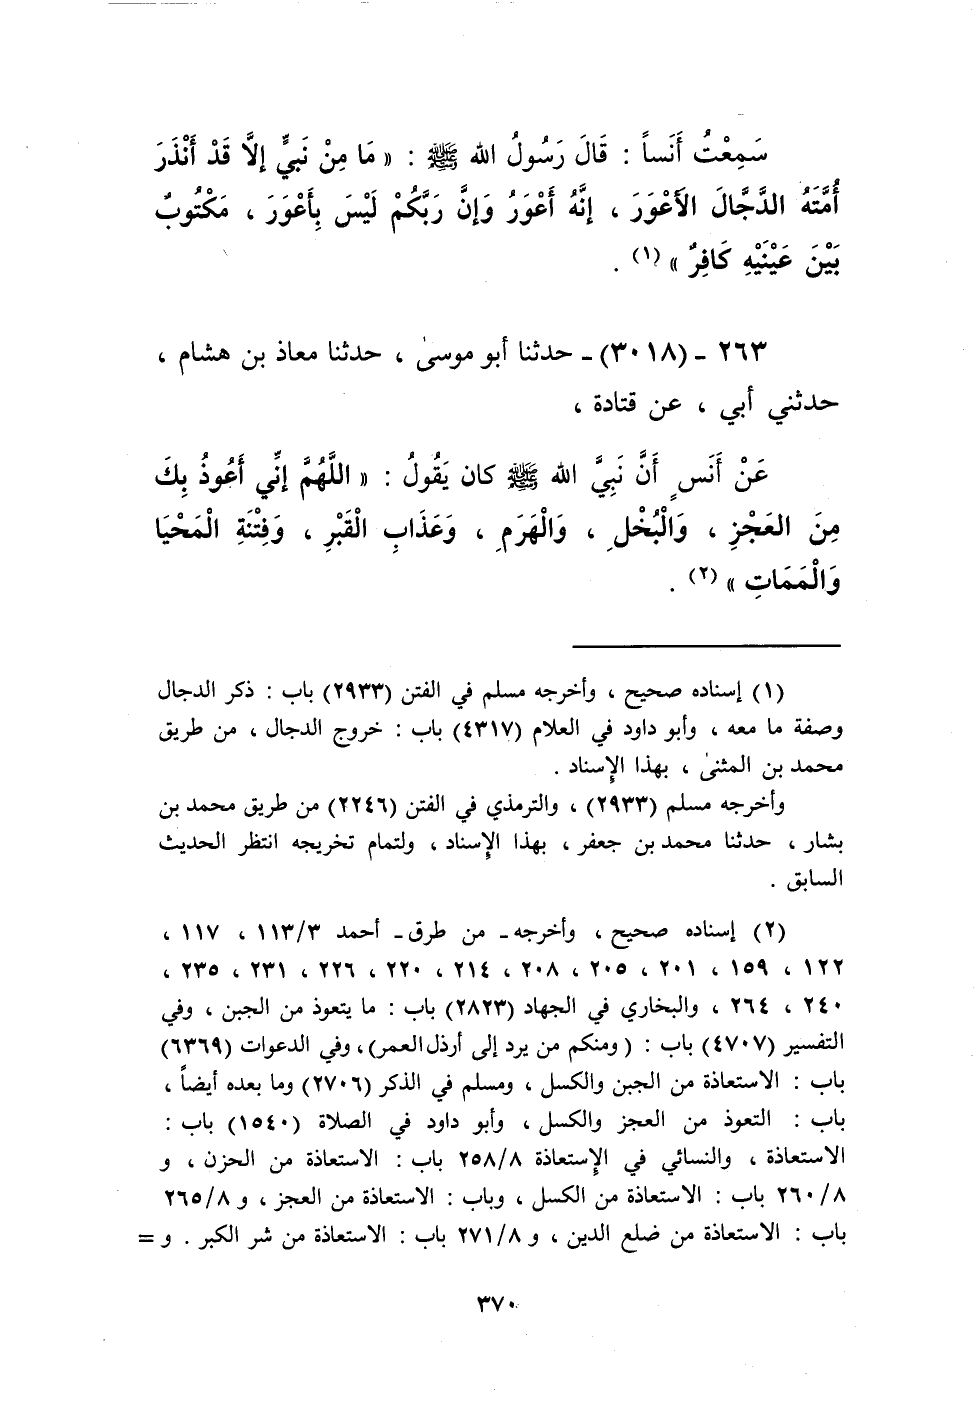 سَمِعْتُ أَنَساً : قَالَ رَسُولُ الله ﷺ : « مَا مِنْ نَبِيٍّ إلَّا قَدْ أَنْذَرَ
أُمَّتَهُ الدَّجَّالَ الأَعْوَرَ ، إنَّهُ أَعْوَرُ وَإنَّ رَبَّكُمْ لَيْسَ بِأَعْوَرَ ، مَكْتُوبٌ
بَيْنَ عَيْنَيْهِ كَافِرٌ » (١) .
٢٦٣ - (٣٠١٨) - حدثنا أبو موسىٰ ، حدثنا معاذ بن هشام ،
حدثني أبي ، عن قتادة ،
عَنْ أَنَسٍ أَنَّ نَبِيَّ الله ﷺ كان يَقُولُ : « اللَّهُمَّ إنِّي أَعُوذُ بِكَ
مِنَ العَجْزِ ، وَالْبُخْلِ ، وَالْهَرَمِ ، وَعَذَابِ الْقَبْرِ ، وَفِتْنَةِ الْمَحْيَا
وَالْمَمَاتِ » (٢) .
(١) إسناده صحيح ، وأخرجه مسلم في الفتن (٢٩٣٣) باب : ذكر الدجال
وصفة ما معه ، وأبو داود في العلام (٤٣١٧) باب : خروج الدجال ، من طريق
محمد بن المثنىٰ ، بهذا الإسناد .
وأخرجه مسلم (٢٩٣٣) ، والترمذي في الفتن (٢٢٤٦) من طريق محمد بن
بشار ، حدثنا محمد بن جعفر ، بهذا الإسناد ، ولتمام تخريجه انتظر الحديث
السابق .
(٢) إسناده صحيح ، وأخرجه - من طرق - أحمد ١١٣/٣ ، ١١٧ ،
١٢٢ ، ١٥٩ ، ٢٠١ ، ٢٠٥ ، ٢٠٨ ، ٢١٤ ، ٢٢٠ ، ٢٢٦ ، ٢٣١ ، ٢٣٥ ،
٢٤٠ ، ٢٦٤ ، والبخاري في الجهاد (٢٨٢٣) باب : ما يتعوذ من الجبن ، وفي
التفسير (٤٧٠٧) باب : (ومنكم من يرد إلى أرذل العمر) ، وفي الدعوات (٦٣٦٩)
باب : الاستعاذة من الجبن والكسل ، ومسلم في الذكر (٢٧٠٦) وما بعده أيضاً ،
باب : التعوذ من العجز والكسل ، وأبو داود في الصلاة (١٥٤٠) باب :
الاستعاذة ، والنسائي في الإستعاذة ٢٥٨/٨ باب : الاستعاذة من الحزن ، و
٢٦٠/٨ باب : الاستعاذة من الكسل ، وباب : الاستعاذة من العجز ، و ٢٦٥/٨
باب : الاستعاذة من ضلع الدين ، و ٢٧١/٨ باب : الاستعاذة من شر الكبر . و =
٣٧٠